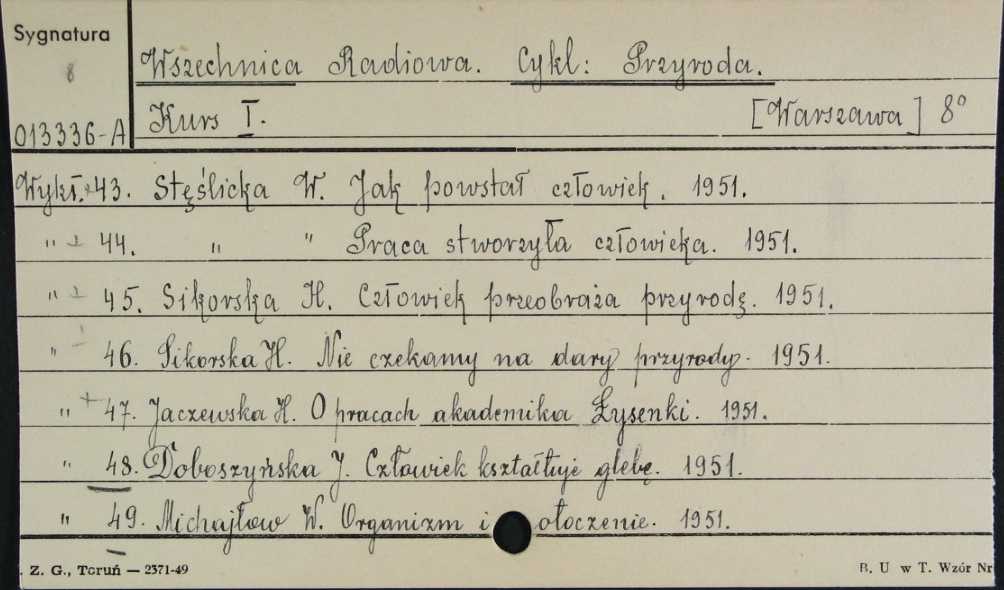 Sygnatura
8
013336-A
Wszechnica Radiowa. Cykl: Przyroda.
Kurs I. [Warszawa] 8°
Wykł. + 43. Stęślicka W. Jak powstał człowiek. 1951.
" + 44. " " Praca stworzyła człowieka. 1951.
" + 45. Sikorska H. Człowiek przeobraża przyrodę. 1951.
" 46. Sikorska H. Nie czekamy na dary przyrody. 1951.
" + 47. Jaczewska H. O pracach akademika Łysenki. 1951.
" 48. Doboszyńska J. Człowiek kształtuje glebę. 1951.
" 49. Michajłow W. Organizm i otoczenie. 1951.
. Z. G., Toruń — 2371-49
B. U w T. Wzór Nr